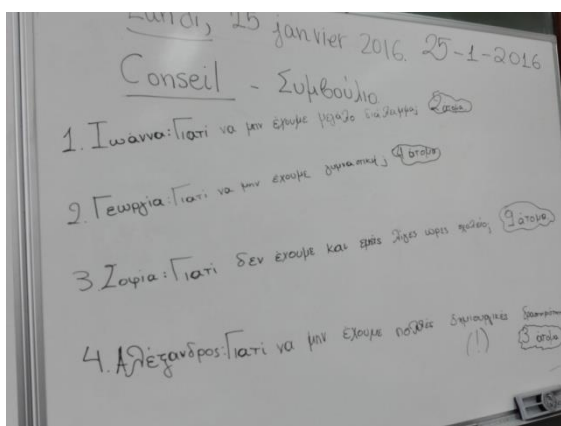 Lundi, 25 janvier 2016. 25-1-2016
Conseil - Συμβούλιο
1. Ιωάννα: Γιατί να μην έχουμε μεγάλο διάλειμμα; 2 άτομα
2. Γεωργία: Γιατί να μην έχουμε γυμναστική; 4 άτομα
3. Σοφία: Γιατί δεν έχουμε και εμείς λίγες ώρες σχολείο; 9 άτομα
4. Αλέξανδρος: Γιατί να μην έχουμε πολλές δημιουργικές
(!) 3 άτομα